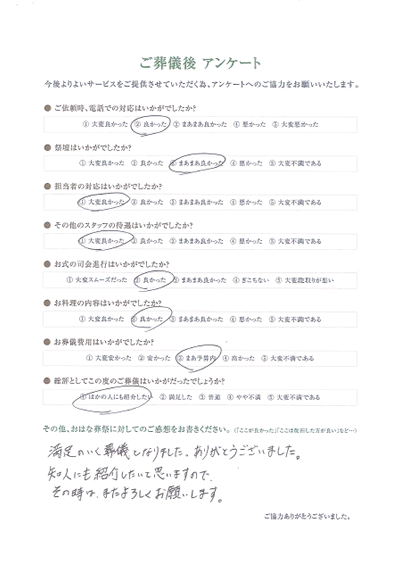 ご葬儀後 アンケート
今後よりよいサービスをご提供させていただく為、アンケートへのご協力をお願いいたします。
● ご依頼時、電話での対応はいかがでしたか?
① 大変良かった ② 良かった ③ まあまあ良かった ④ 悪かった ⑤ 大変悪かった
● 祭壇はいかがでしたか?
① 大変良かった ② 良かった ③ まあまあ良かった ④ 悪かった ⑤ 大変不満である
● 担当者の対応はいかがでしたか?
① 大変良かった ② 良かった ③ まあまあ良かった ④ 悪かった ⑤ 大変不満である
● その他のスタッフの待遇はいかがでしたか?
① 大変良かった ② 良かった ③ まあまあ良かった ④ 悪かった ⑤ 大変不満である
● お式の司会進行はいかがでしたか?
① 大変スムーズだった ② 良かった ③ まあまあ良かった ④ ぎこちない ⑤ 大変段取りが悪い
● お料理の内容はいかがでしたか?
① 大変良かった ② 良かった ③ まあまあ良かった ④ 悪かった ⑤ 大変不満である
● お葬儀費用はいかがでしたか?
① 大変安かった ② 安かった ③ まあ予算内 ④ 高かった ⑤ 大変不満である
● 総評としてこの度のご葬儀はいかがだったでしょうか?
① ほかの人にも紹介したい ② 満足した ③ 普通 ④ やや不満 ⑤ 大変不満である
その他、おはな葬祭に対してのご感想をお書きください。(「ここが良かった」「ここは改善した方が良い」など…)
満足のいく葬儀となりました。ありがとうございました。
知人にも紹介したいと思いますので、
その時は、またよろしくお願いします。
ご協力ありがとうございました。